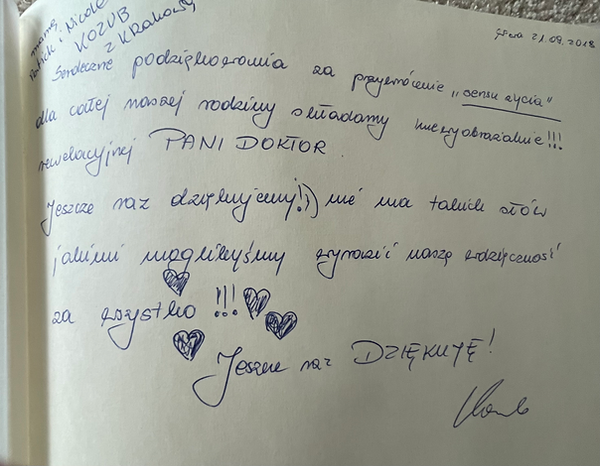 mama,
Patrick i Nicole
KOZUB
z Krakowa
21.09.2018
Serdeczne podziękowania za przywrócenie "sensu życia"
dla całej naszej rodziny składamy niewyobrażalnie!!!
rewelacyjnej PANI DOKTOR.
Jeszcze raz dziękujemy!:) nie ma takich słów
jakimi moglibyśmy wyrazić naszą wdzięczność
za wszystko !!!
Jeszcze raz DZIĘKUJĘ!